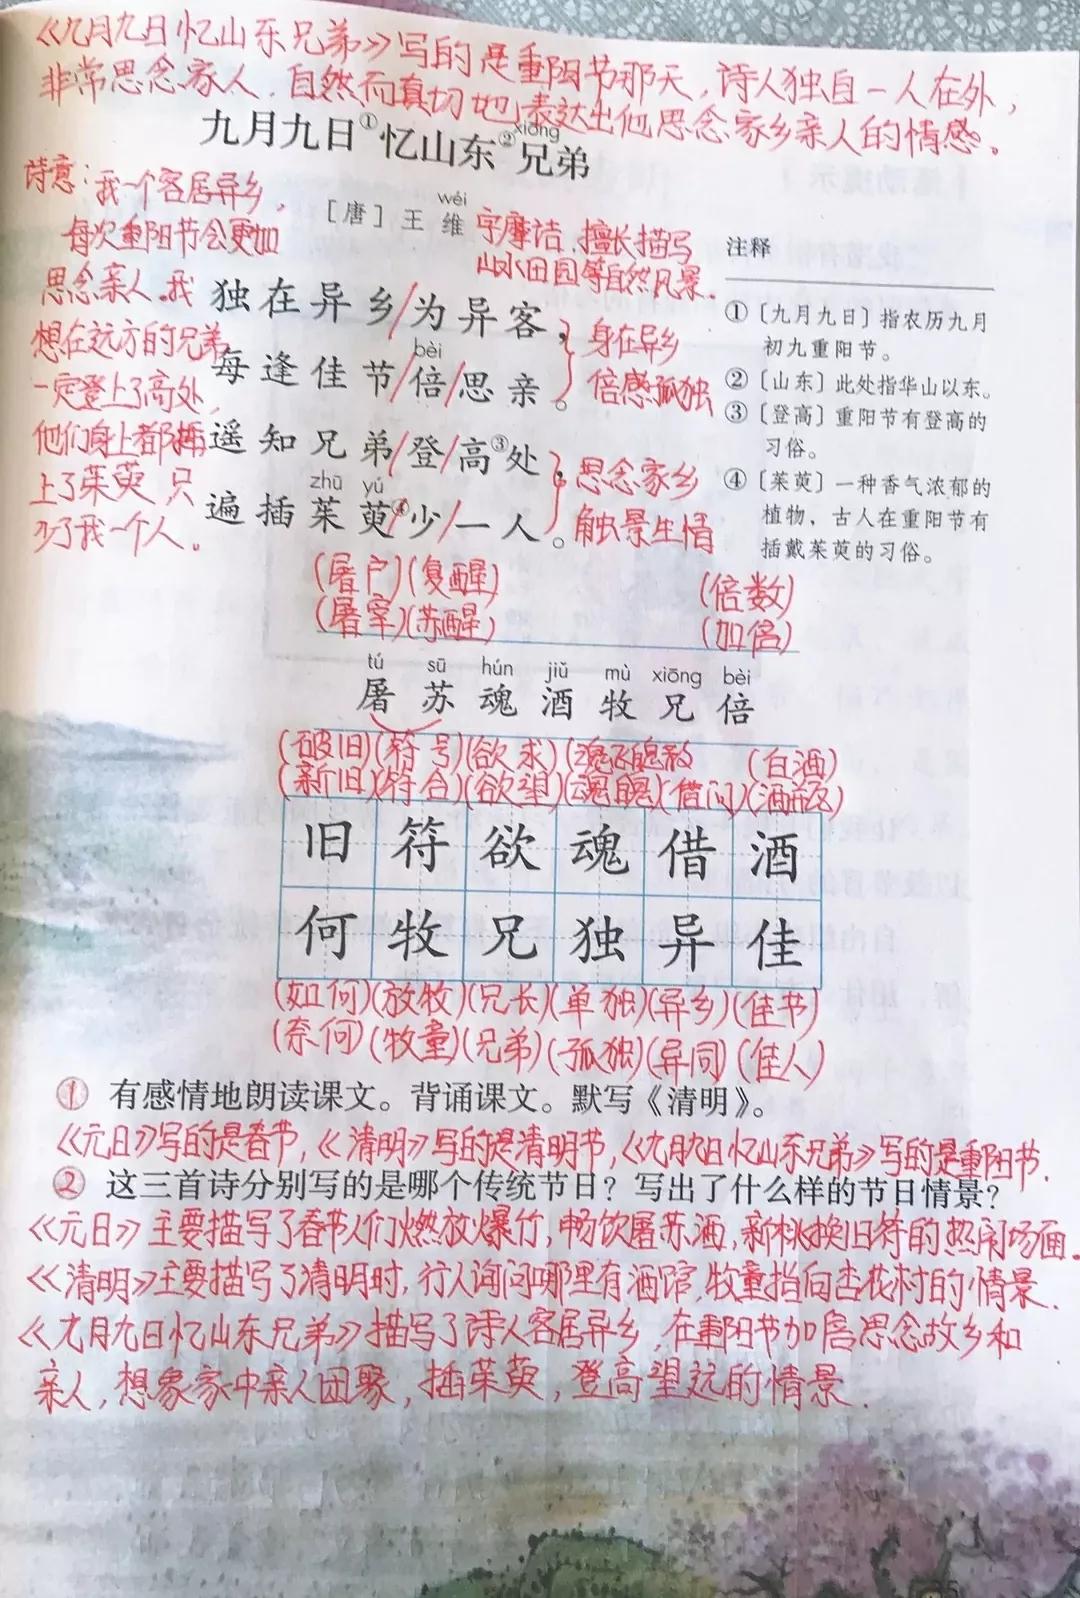 《九月九日忆山东兄弟》写的是重阳节那天，诗人独自一人在外，
非常思念家人．自然而真切地表达出他思念家乡亲人的情感。
xiōng
九月九日①忆山东②兄弟
诗意：我一个客居异乡，
每次重阳节会更加
思念亲人。我
想在远方的兄弟
一定登上了高处，
他们身上都插
上了茱萸，只
少了我一个人。
wéi
［唐］王维
字摩诘．擅长描写
山水田园等自然风景．
独在异乡/为异客，
bèi
每逢佳节/倍/思亲。
遥知兄弟/登/高③处，
zhū yú
遍插茱萸④/少/一人。
身在异乡
倍感孤独
思念家乡
触景生情
注释
①〔九月九日〕指农历九月
初九重阳节。
②〔山东〕此处指华山以东。
③〔登高〕重阳节有登高的
习俗。
④〔茱萸〕一种香气浓郁的
植物，古人在重阳节有
插戴茱萸的习俗。
(屠户)(复醒) (倍数)
(屠宰)(苏醒) (加倍)
tú sū hún jiǔ mù xiōng bèi
屠 苏 魂 酒 牧 兄 倍
(破旧)(符号)(欲求)(魂飞魄散 (白酒)
(新旧)(符合)(欲望)(魂魄)(借问)(酒瓶)
旧 符 欲 魂 借 酒
何 牧 兄 独 异 佳
(如何)(放牧)(兄长)(单独)(异乡)(佳节)
(奈何)(牧童)(兄弟)(孤独)(异同)(佳人)
① 有感情地朗读课文。背诵课文。默写《清明》。
《元日》写的是春节，《清明》写的是清明节，《九月九日忆山东兄弟》写的是重阳节．
② 这三首诗分别写的是哪个传统节日？写出了什么样的节日情景？
《元日》主要描写了春节人们燃放爆竹，畅饮屠苏酒，新桃换旧符的热闹场面．
《清明》主要描写了清明时，行人询问哪里有酒馆，牧童指向杏花村的情景．
《九月九日忆山东兄弟》描写了诗人客居异乡，在重阳节加倍思念故乡和
亲人，想象家中亲人团聚，插茱萸，登高望远的情景．